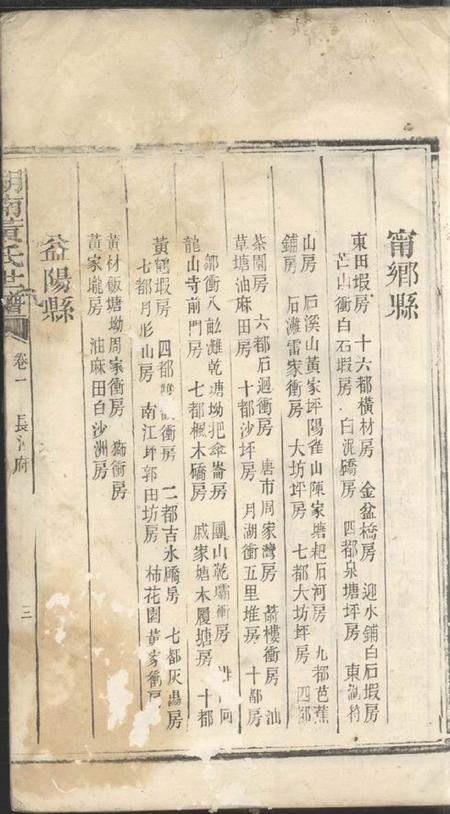 甯鄉縣
東田塅房 十六都橫材房 金盆橋房 迎水鋪白石塅房
芒山衝白石塅房 白泥礄房 四都泉塘坪房 東
山房 石溪山黃家坪陽雀山陳家塘耙石河房 九都芭蕉
鋪房 石灘雷家衝房 大坊坪房 七都大坊坪房 四都
茶園房 六都石迴衝房 唐市周家灣房 箭樓衝房 油
草塘油麻田房 十都沙坪房 月湖衝五里堆房 十都房
鄒衝八畝灘乾塘坳把傘崙房 團山乾壩衝房
龍山寺前門房 七都楓木礄房 戚家塘木履塘房 十都
黃鶴塅房 四都 衝房 二都吉永礄房 七都灰湯房
七都月形山房 南江坪郭田坊房 柿花園黃家衝房
黃材飯塘坳周家衝房 獅衝房
黃家壠房 油麻田白沙洲房
益陽縣
湖南黃氏世譜 卷一 長沙府 三